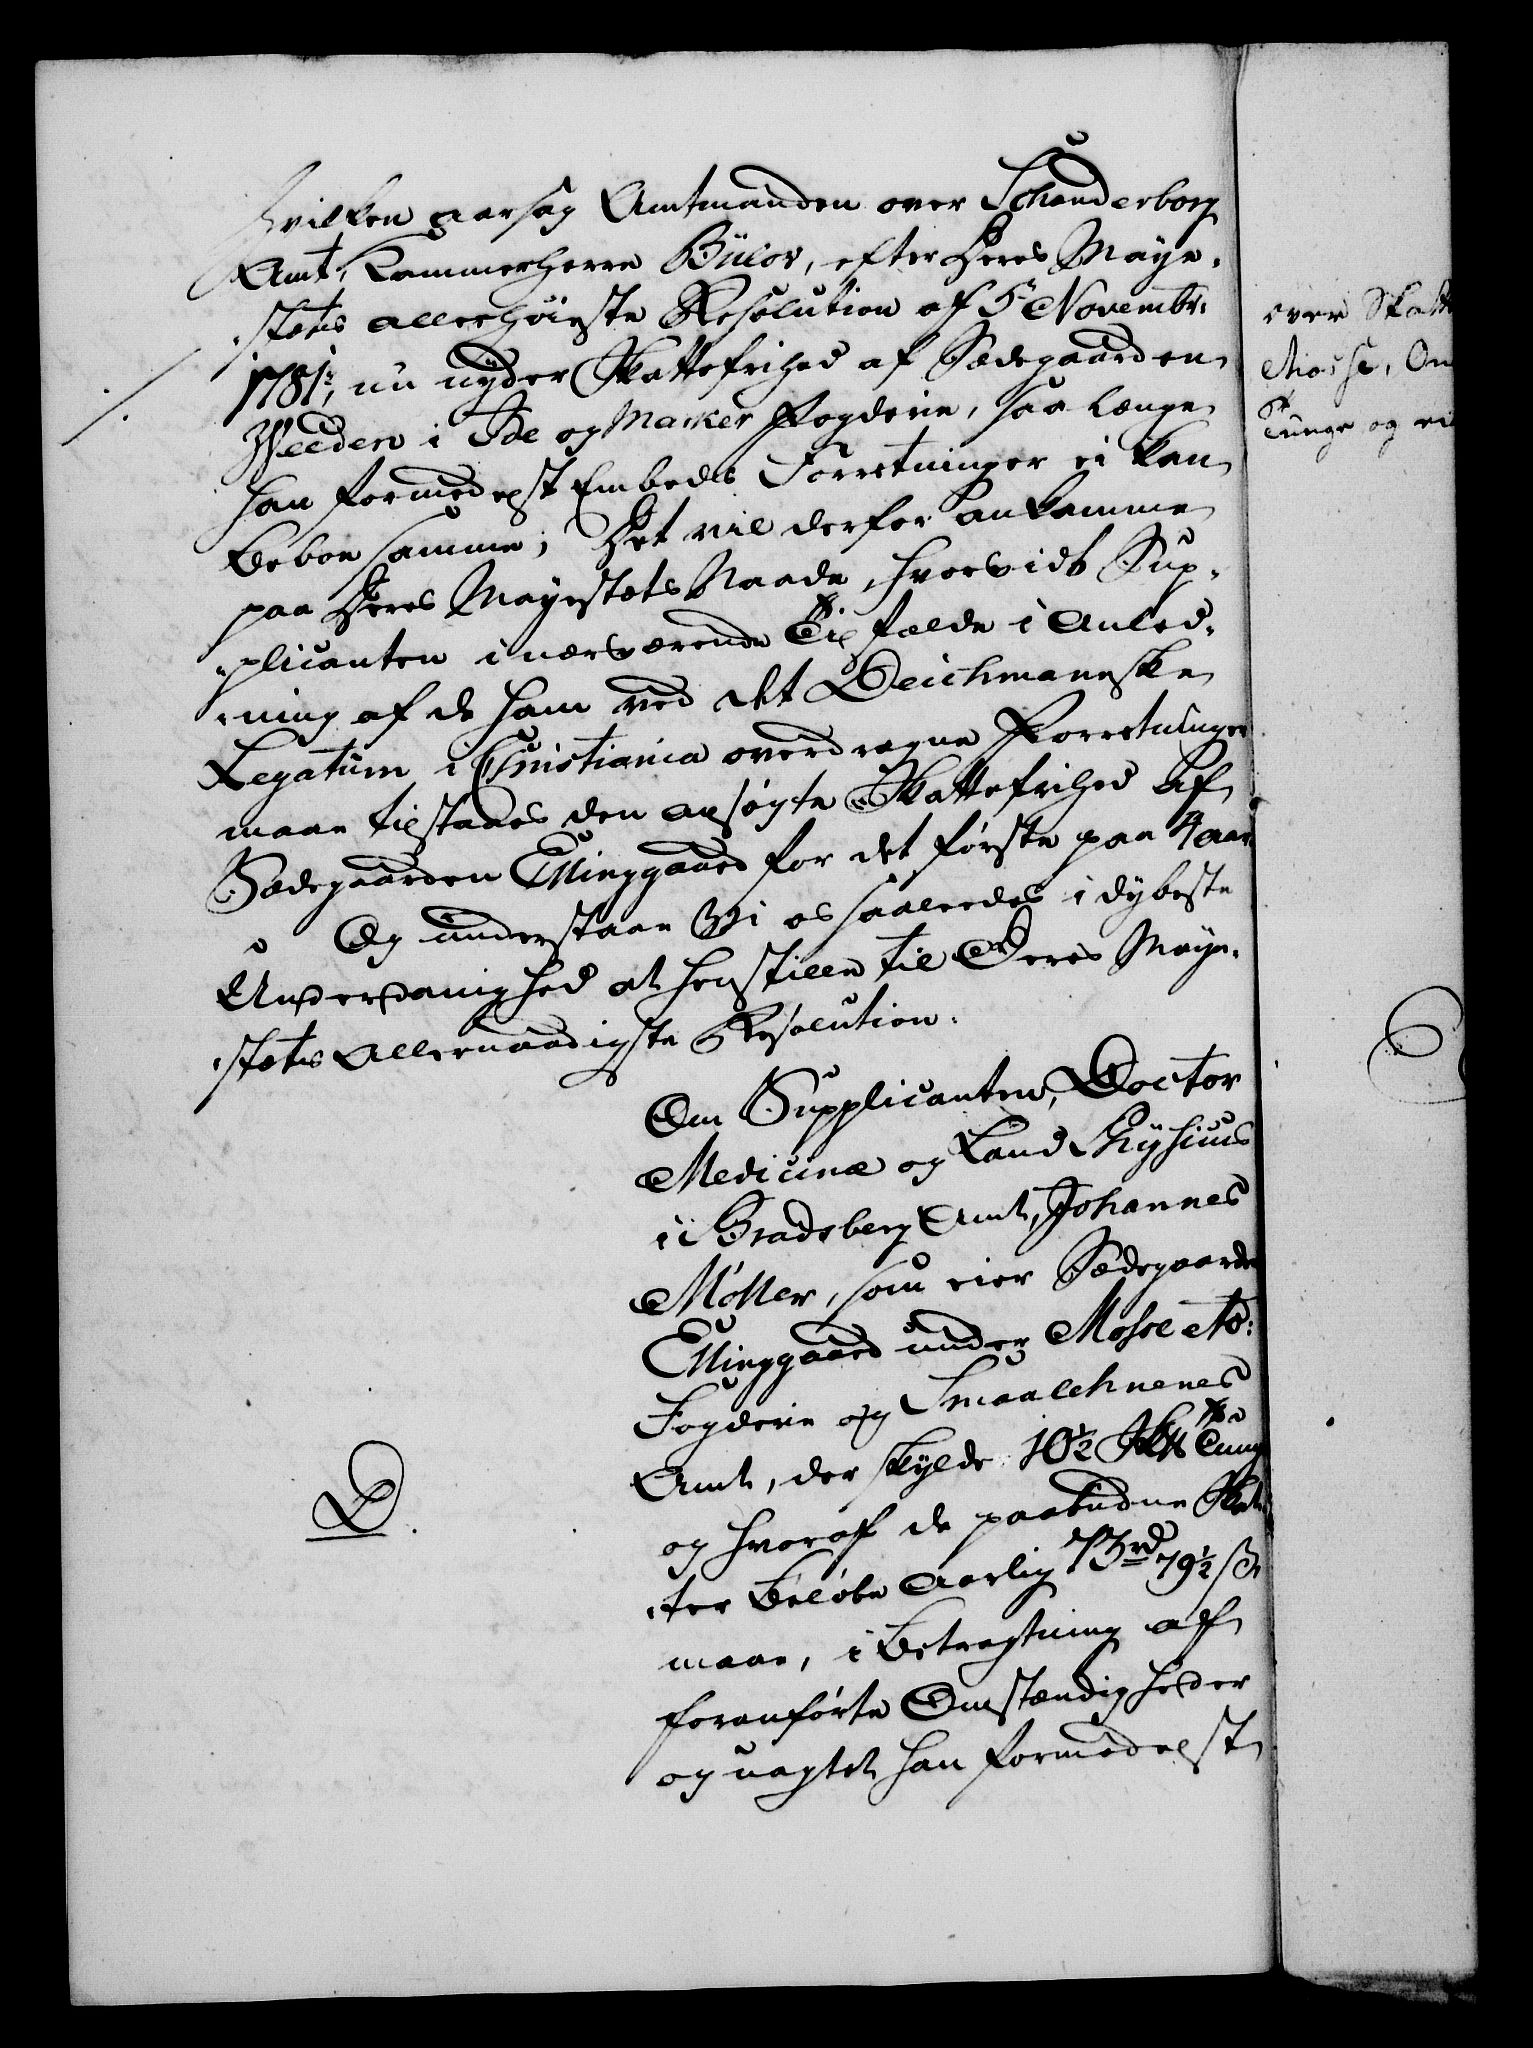 hvilken aarsag Amtmanden over Schanderborg
Amt, Kammerherre Bülov, efter Deres Maye-
stets allerhöieste Resolution af 5te Novembr:
1781, nu nyder Skattefrihed af Sædegaarden
Weeden i Ide og Marker Fogderie, saa længe
han formedelst Embeds Forretninger ei kan
beboe samme; Det vil derfor ankomme
paa Deres Mayestets Naade, hvorvidt Sup-
plicanten i nærværende Tilfælde i Anled-
ning af de ham ved det Deichmanske
Legatum i Christiania overdragne Forretninger
maae tilstaaes den ansøgte Skattefrihed af
Sædegaarden Ellinggaard for det første paa 4 aar
Og understaae Vi os saaledes i dybeste
Underdanighed at henstille til Deres Maye-
stets Allernaadigste Resolution.
Om Supplicanten, Doctor
Medicinæ og Land Physicus
i Bradsberg Amt, Johannes
Möller, som eier Sædegaarden
Ellinggaard under Mosse etc:
Fogderie og Smaalehnenes
Amt, der skylder 10½ Skp Tunge
og hvoraf de paabudne Skat-
ter beløbe aarlig 73 rd 79½ ß
maae, i Betragtning af
foranførte Omstændigheder
og uagtet han formedelst
D.
over Skatt
Mosse, On
Tunge og ei